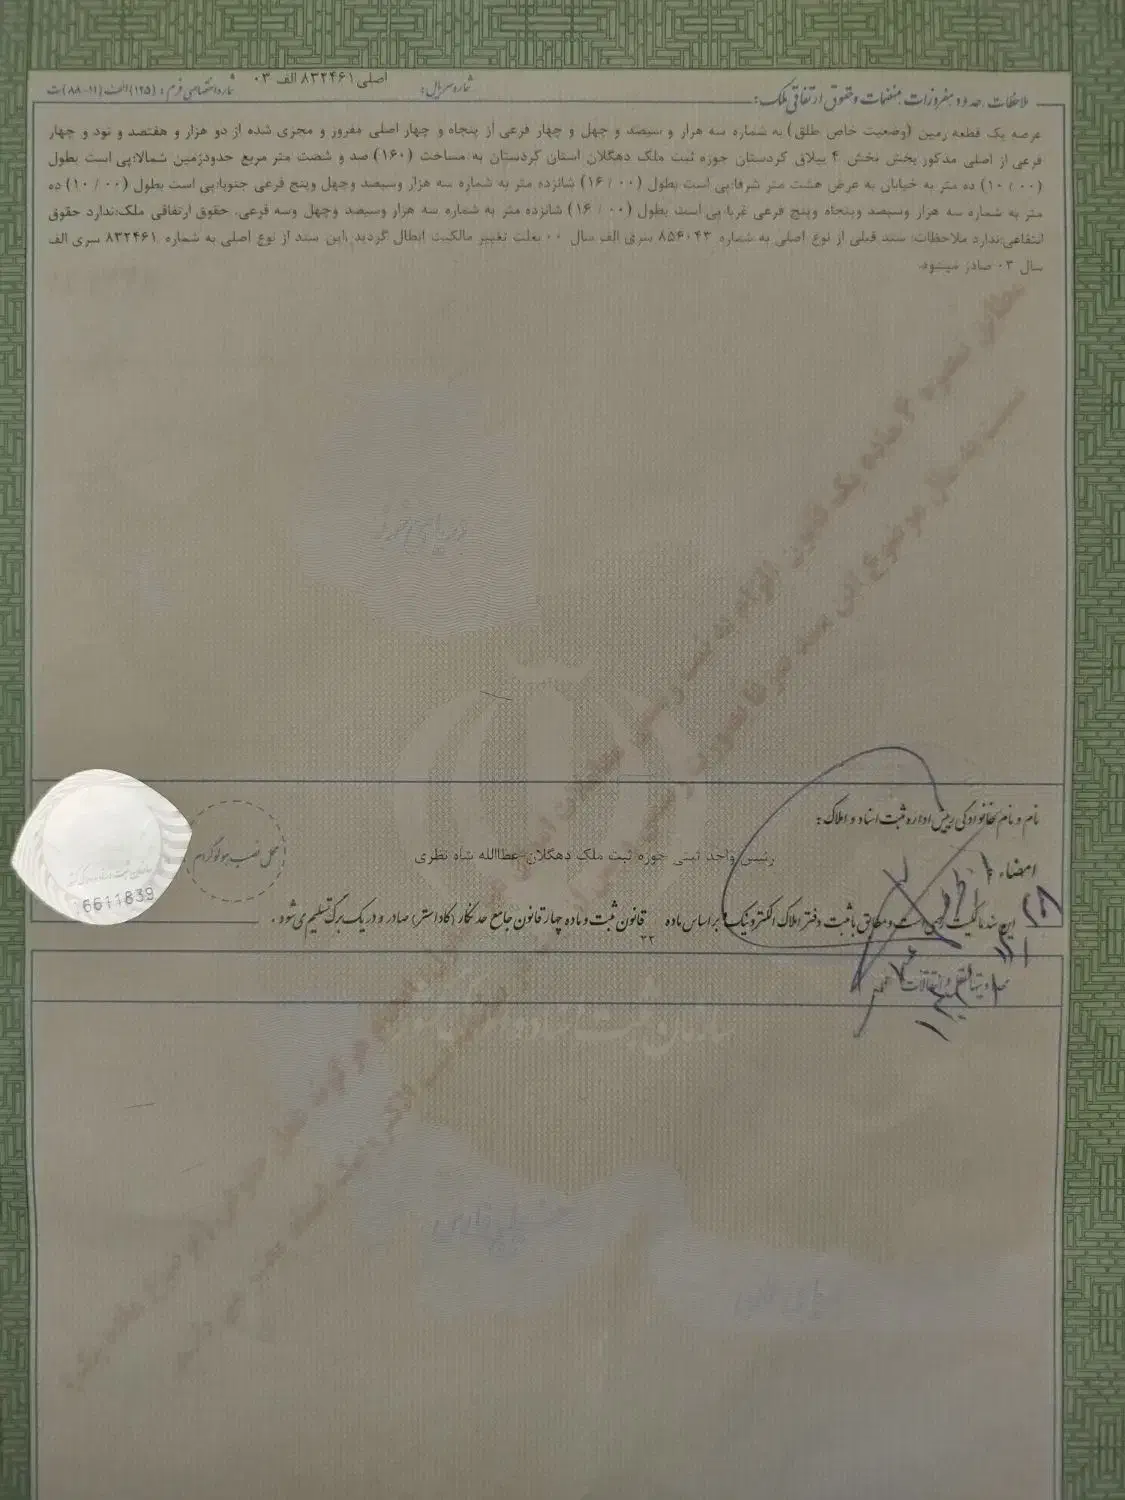 ملاحظات، حدود مفروزات، منضمات و حقوق ارتفاقی ملک:
شماره سریال: اصلی ۸۳۲۴۶۱ الف ۰۳
شماره اختصاصی فرم: (۱۲۵) الف (۱۱-۸۸) ت
عرصه یک قطعه زمین (وضعیت خاص طلق) به شماره سه هزار و سیصد و چهل و چهار فرعی از پنجاه و چهار اصلی مفروز و مجزی شده از دو هزار و هفتصد و نود و چهار
فرعی از اصلی مذکور بخش بخش ۴ ییلاق کردستان حوزه ثبت ملک دهگلان استان کردستان به مساحت (۱۶۰) صد و شصت متر مربع حدودزمین شمالا:پی است بطول
(۱۰/۰۰) ده متر به خیابان به عرض هشت متر شرقا:پی است بطول (۱۶/۰۰) شانزده متر به شماره سه هزار وسیصد وچهل وپنج فرعی جنوبا:پی است بطول (۱۰/۰۰) ده
متر به شماره سه هزار وسیصد وپنجاه وپنج فرعی غربا:پی است بطول (۱۶/۰۰) شانزده متر به شماره سه هزار وسیصد وچهل وسه فرعی، حقوق ارتفاقی ملک:ندارد حقوق
انتفاعی:ندارد ملاحظات: سند قبلی از نوع اصلی به شماره سری الف سال ۰۰ بعلت تغییر مالکیت ابطال گردید این سند از نوع اصلی به شماره ۸۳۲۴۶۱ سری الف
سال ۰۳ صادر میشود.
دریای خزر
نام و نام خانوادگی رییش اداره ثبت اسناد و املاک:
رئیس واحد ثبتی حوزه ثبت ملک دهگلان عطاالله شاه نظری
محل نصب هولوگرام
6611839
امضاء:
این سند مالکیت رسمی است و مطابق با ثبت دفتر املاک الکترونیک و بر اساس ماده ۲۲ قانون ثبت و ماده چهار قانون جامع حدنگار (کاداستر) صادر و در یک برگ تسلیم می شود.
نقل و انتقالات
خلیج فارس
دریای عمان